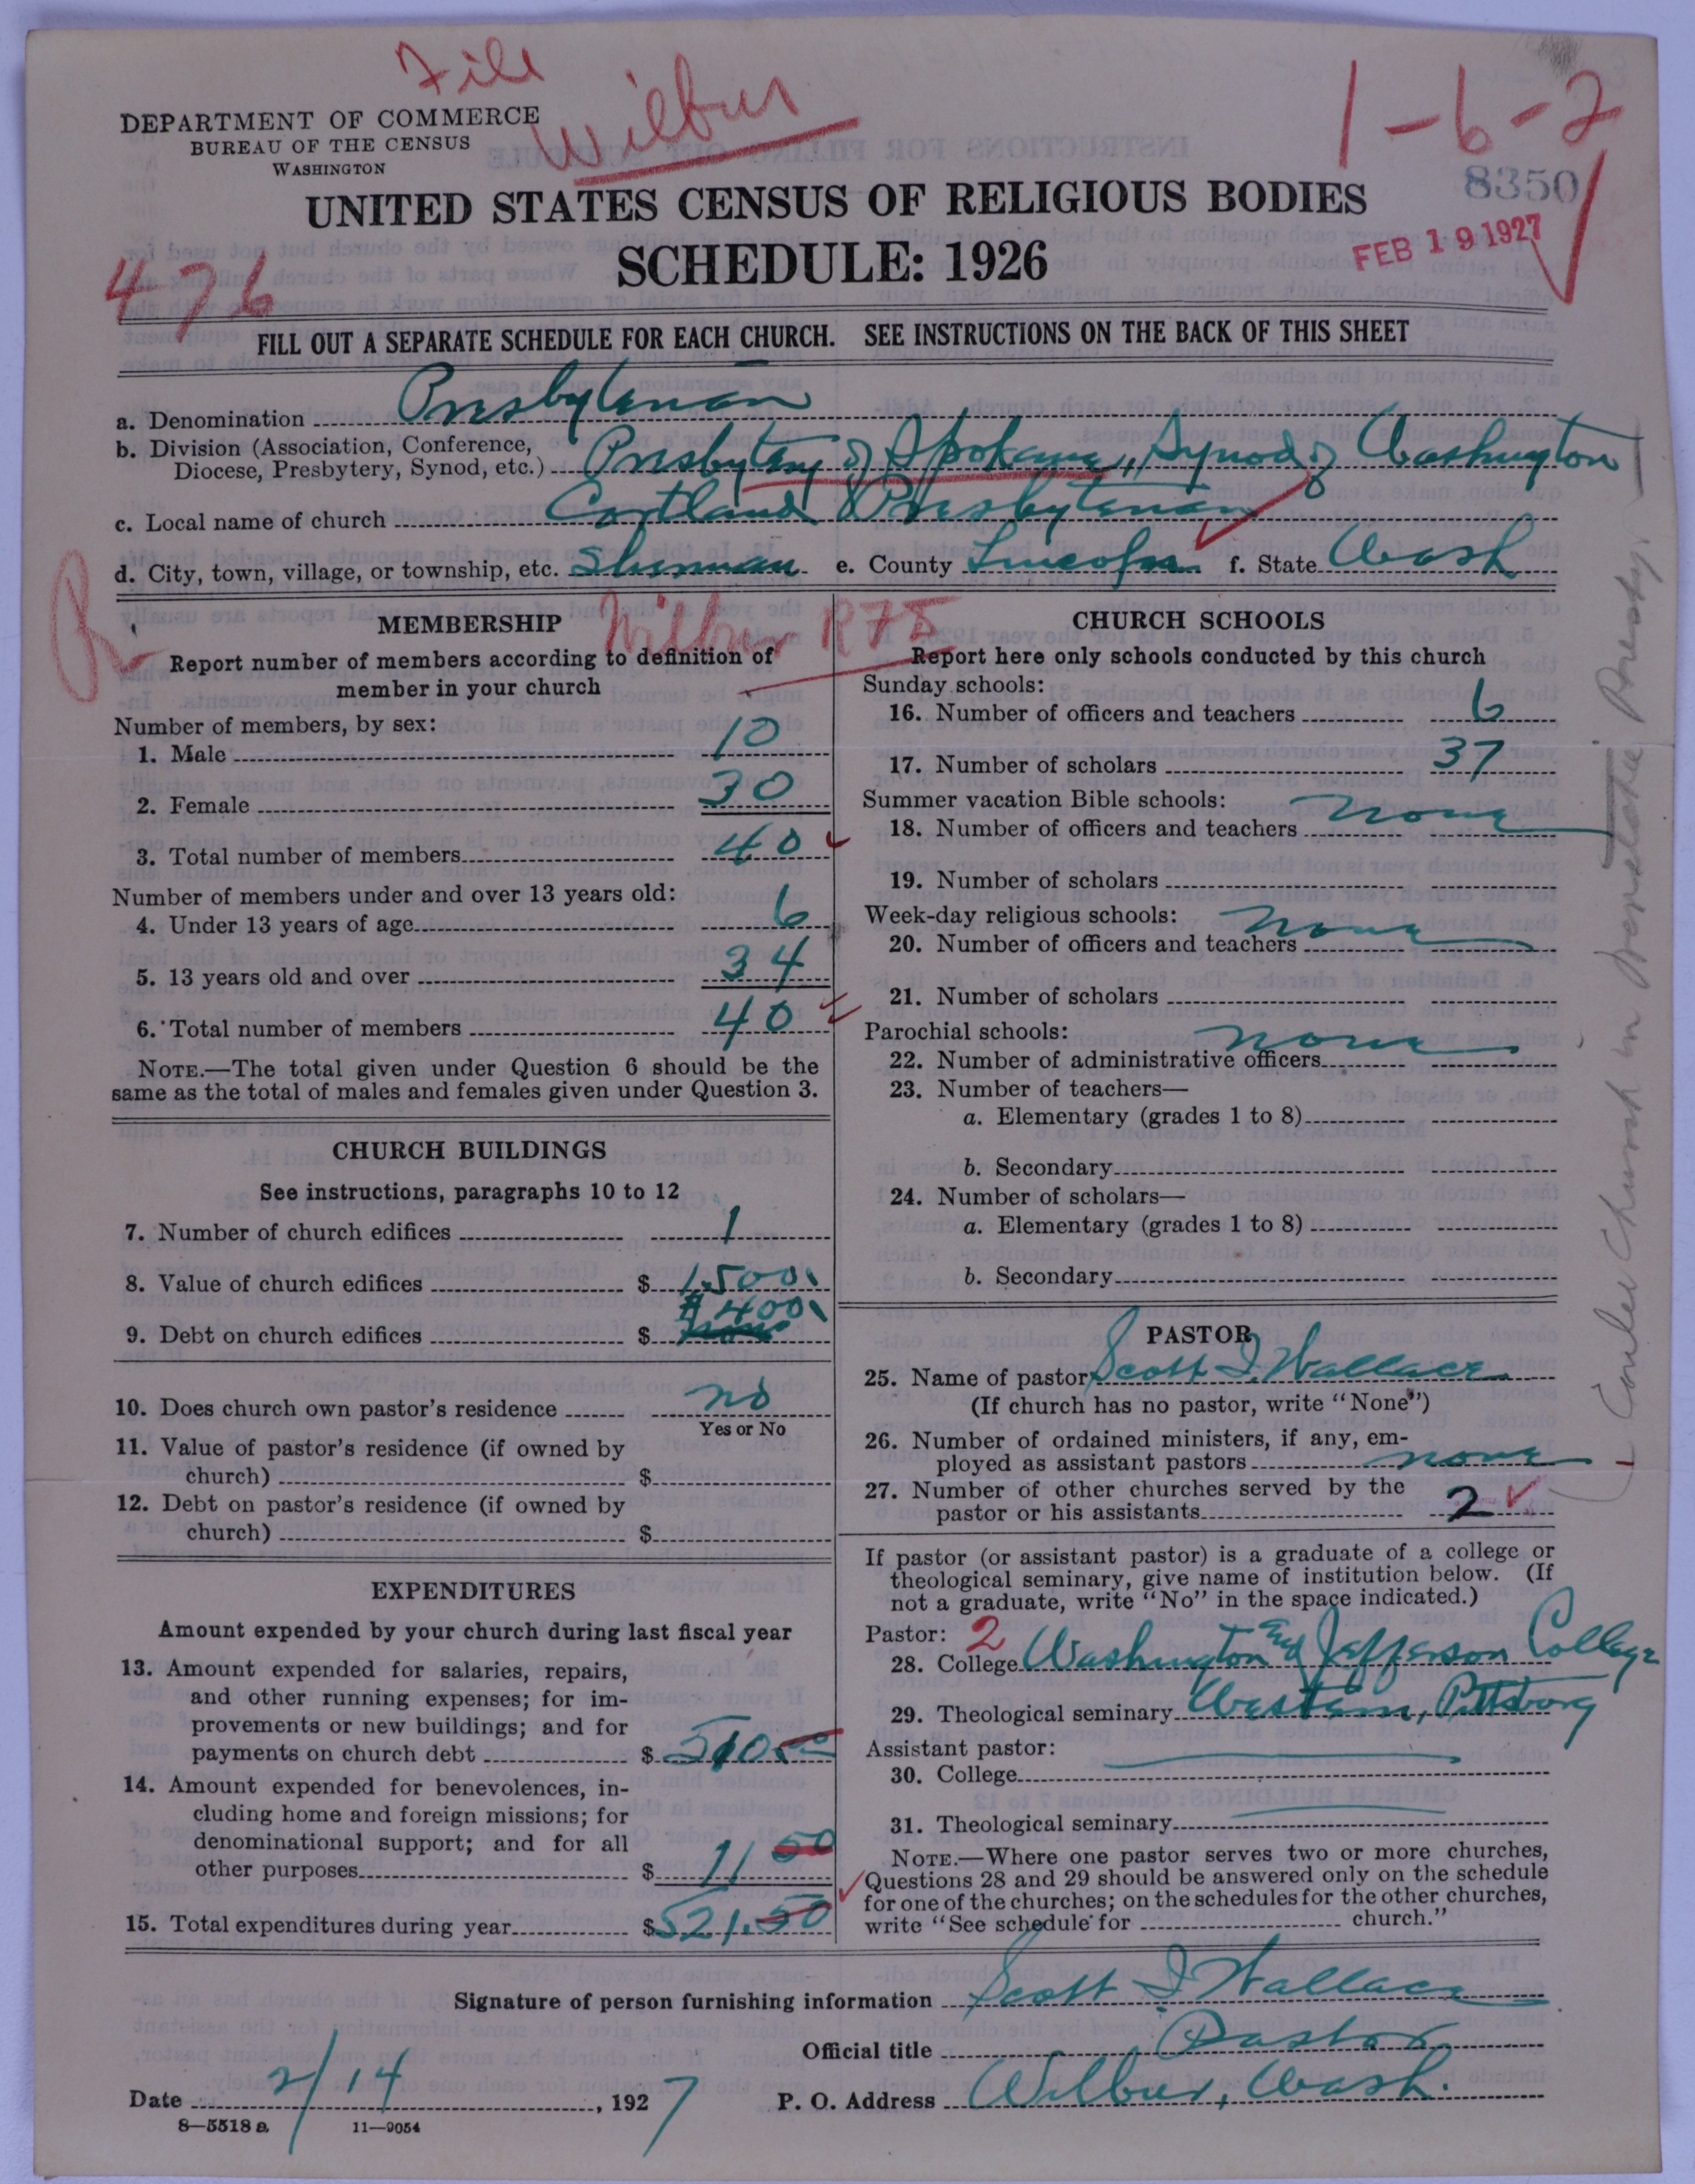 File
Wilbur
1-6-2
DEPARTMENT OF COMMERCE
BUREAU OF THE CENSUS
WASHINGTON
8350
UNITED STATES CENSUS OF RELIGIOUS BODIES
SCHEDULE: 1926
FEB 19 1927
476
FILL OUT A SEPARATE SCHEDULE FOR EACH CHURCH. SEE INSTRUCTIONS ON THE BACK OF THIS SHEET
a. Denomination Presbyterian
b. Division (Association, Conference,
Diocese, Presbytery, Synod, etc.) Presbytery of Spokane, Synod of Washington
c. Local name of church Cortland Presbyterian
d. City, town, village, or township, etc. Sherman e. County Lincoln f. State Wash
Wilbur R75
MEMBERSHIP
Report number of members according to definition of
member in your church
Number of members, by sex:
1. Male 10
2. Female 30
3. Total number of members 40
Number of members under and over 13 years old:
4. Under 13 years of age 6
5. 13 years old and over 34
6. Total number of members 40
NOTE.—The total given under Question 6 should be the
same as the total of males and females given under Question 3.
CHURCH BUILDINGS
See instructions, paragraphs 10 to 12
7. Number of church edifices 1
8. Value of church edifices $ 1,500.
9. Debt on church edifices $ #400.
10. Does church own pastor's residence no
Yes or No
11. Value of pastor's residence (if owned by
church) $
12. Debt on pastor's residence (if owned by
church) $
EXPENDITURES
Amount expended by your church during last fiscal year
13. Amount expended for salaries, repairs,
and other running expenses; for im-
provements or new buildings; and for
payments on church debt $ 510.00
14. Amount expended for benevolences, in-
cluding home and foreign missions; for
denominational support; and for all
other purposes $ 11 50
15. Total expenditures during year $ 521.50
CHURCH SCHOOLS
Report here only schools conducted by this church
Sunday schools:
16. Number of officers and teachers 6
17. Number of scholars 37
Summer vacation Bible schools: none
18. Number of officers and teachers
19. Number of scholars
Week-day religious schools: none
20. Number of officers and teachers
21. Number of scholars
Parochial schools: none
22. Number of administrative officers
23. Number of teachers—
a. Elementary (grades 1 to 8)
b. Secondary
24. Number of scholars—
a. Elementary (grades 1 to 8)
b. Secondary
PASTOR
25. Name of pastor Scott I. Wallace
(If church has no pastor, write "None")
26. Number of ordained ministers, if any, em-
ployed as assistant pastors none
27. Number of other churches served by the
pastor or his assistants 2
If pastor (or assistant pastor) is a graduate of a college or
theological seminary, give name of institution below. (If
not a graduate, write "No" in the space indicated.)
Pastor: 2
28. College Washington and Jefferson College
29. Theological seminary Western, Pittsburg
Assistant pastor:
30. College
31. Theological seminary
NOTE.—Where one pastor serves two or more churches,
Questions 28 and 29 should be answered only on the schedule
for one of the churches; on the schedules for the other churches,
write "See schedule for church."
Signature of person furnishing information Scott I. Wallace
Official title Pastor
Date 2/14, 1927 P. O. Address Wilbur, Wash.
8—5518 a 11—9054
Church in Presby.